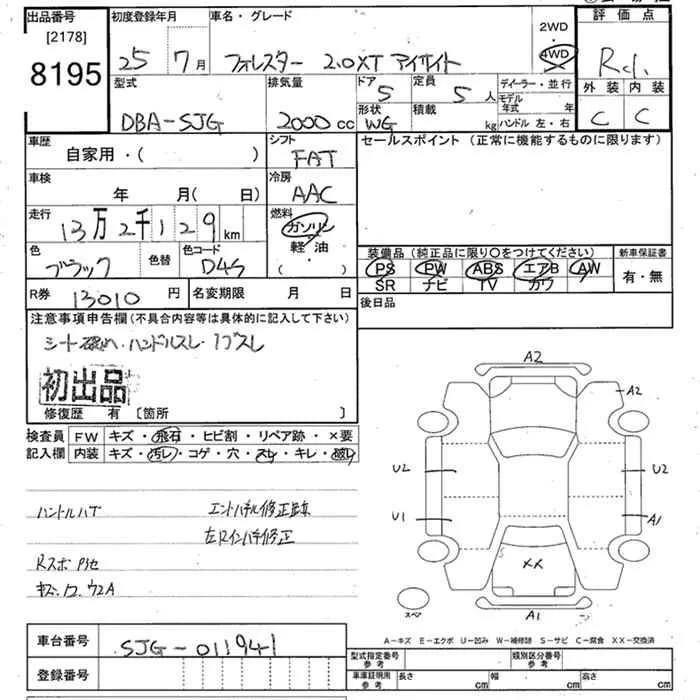 出品番号 初度登録年月 車名・グレード 2WD 評価点
[2178] 4WD
8195 25 7月 フォレスター 2.0XT アイサイト R.d.
型式 排気量 ドア 定員 デイーラー・並行 外装 内装
5 5人 モデル年式 年
DBA-SJG 2000cc 形状 積載 ハンドル 左・右 C C
WG kg
車歴 シフト セールスポイント (正常に機能するものに限ります)
自家用・( ) FAT
車検 冷房
年 月(日) AAC
走行 燃料
13万2千129km ガソリン
軽油
色 色替 色コード ( ・ )
ブラック D4S
装備品(純正品に限り〇をつけてください) 新車保証書
PS PW ABS エアB AW 有・無
SR ナビ TV カワ
R券 13010円 名変期限 月 日 後日品
注意事項申告欄(不具合内容等は具体的に記入して下さい)
シート破れ・ハンドルスレ・1ブスレ
初出品
修復歴 有 [箇所 ]
検査員 FW キズ・飛石・ヒビ割・リペア跡・×要
記入欄 内装 キズ・汚レ・コゲ・穴・スレ・キレ・破レ
A2
A2
U2 U2
U1 A1
XX
A1
スペア
ハンドルハゲ エンドパネル修正歪
左Rインパネ修正
Rスポ
A-キズ E-エクボ U-凹み W-補修跡 S-サビ C-腐食 XX-交換済
車台番号 SJG-011941
登録番号
型式指定番号 参考 類別区分番号 参考
車庫証明用 参考 長さ cm 幅 cm 高さ cm